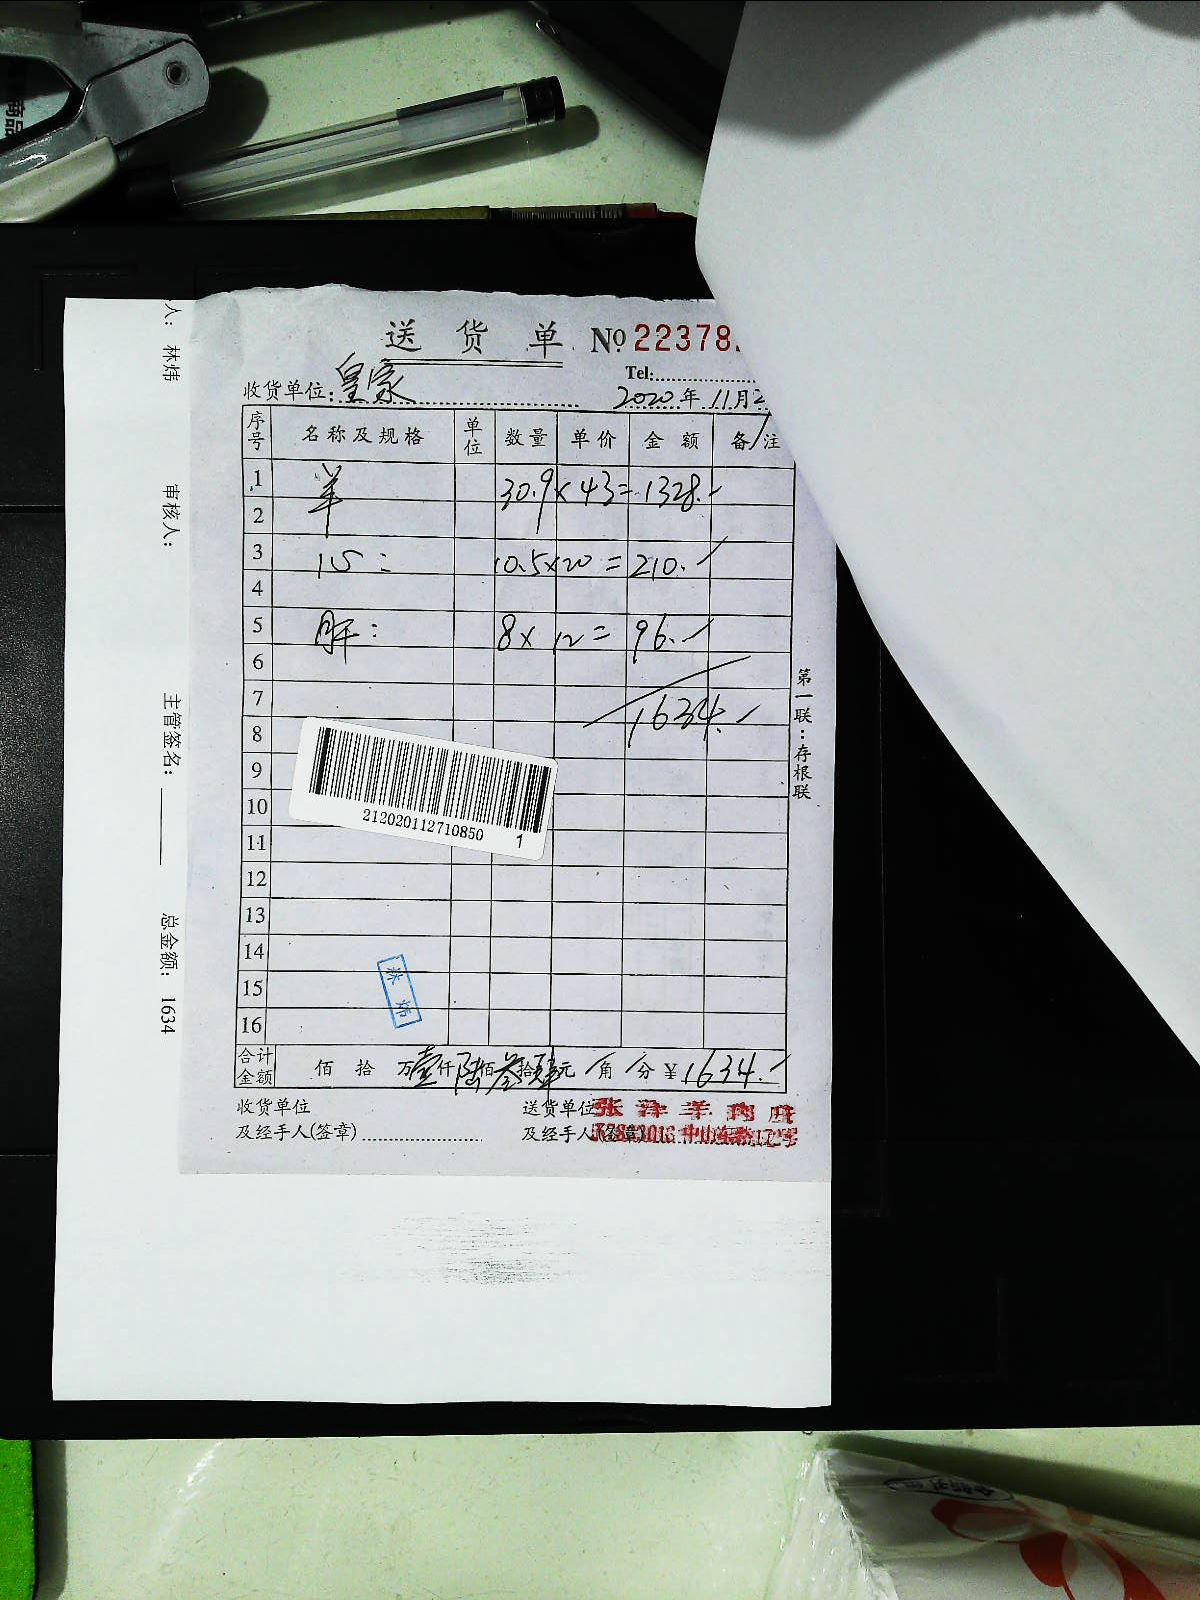 商品
人: 林炜
审核人:
主管签名:
总金额: 1634
送 货 单 № 22378
Tel:
收货单位: 皇家
2020年 11月2
序号 名称及规格 单位 数量 单价 金额 备注
1 羊 30.9 × 43 = 1328.
2
3 心: 10.5 × 20 = 210.
4
5 肝: 8 × 12 = 96.
6
7 1634.
8
9
10
11
12
13
14
15
16
212020112710850 1
林炜
合计金额 佰 拾 万 壹 仟 陆 佰 叁 拾 肆 元 / 角 / 分 ¥ 1634.
收货单位
及经手人(签章)
送货单位
及经手人(签章)
张 洋 羊 肉 店
中山东路17号
第一联:存根联